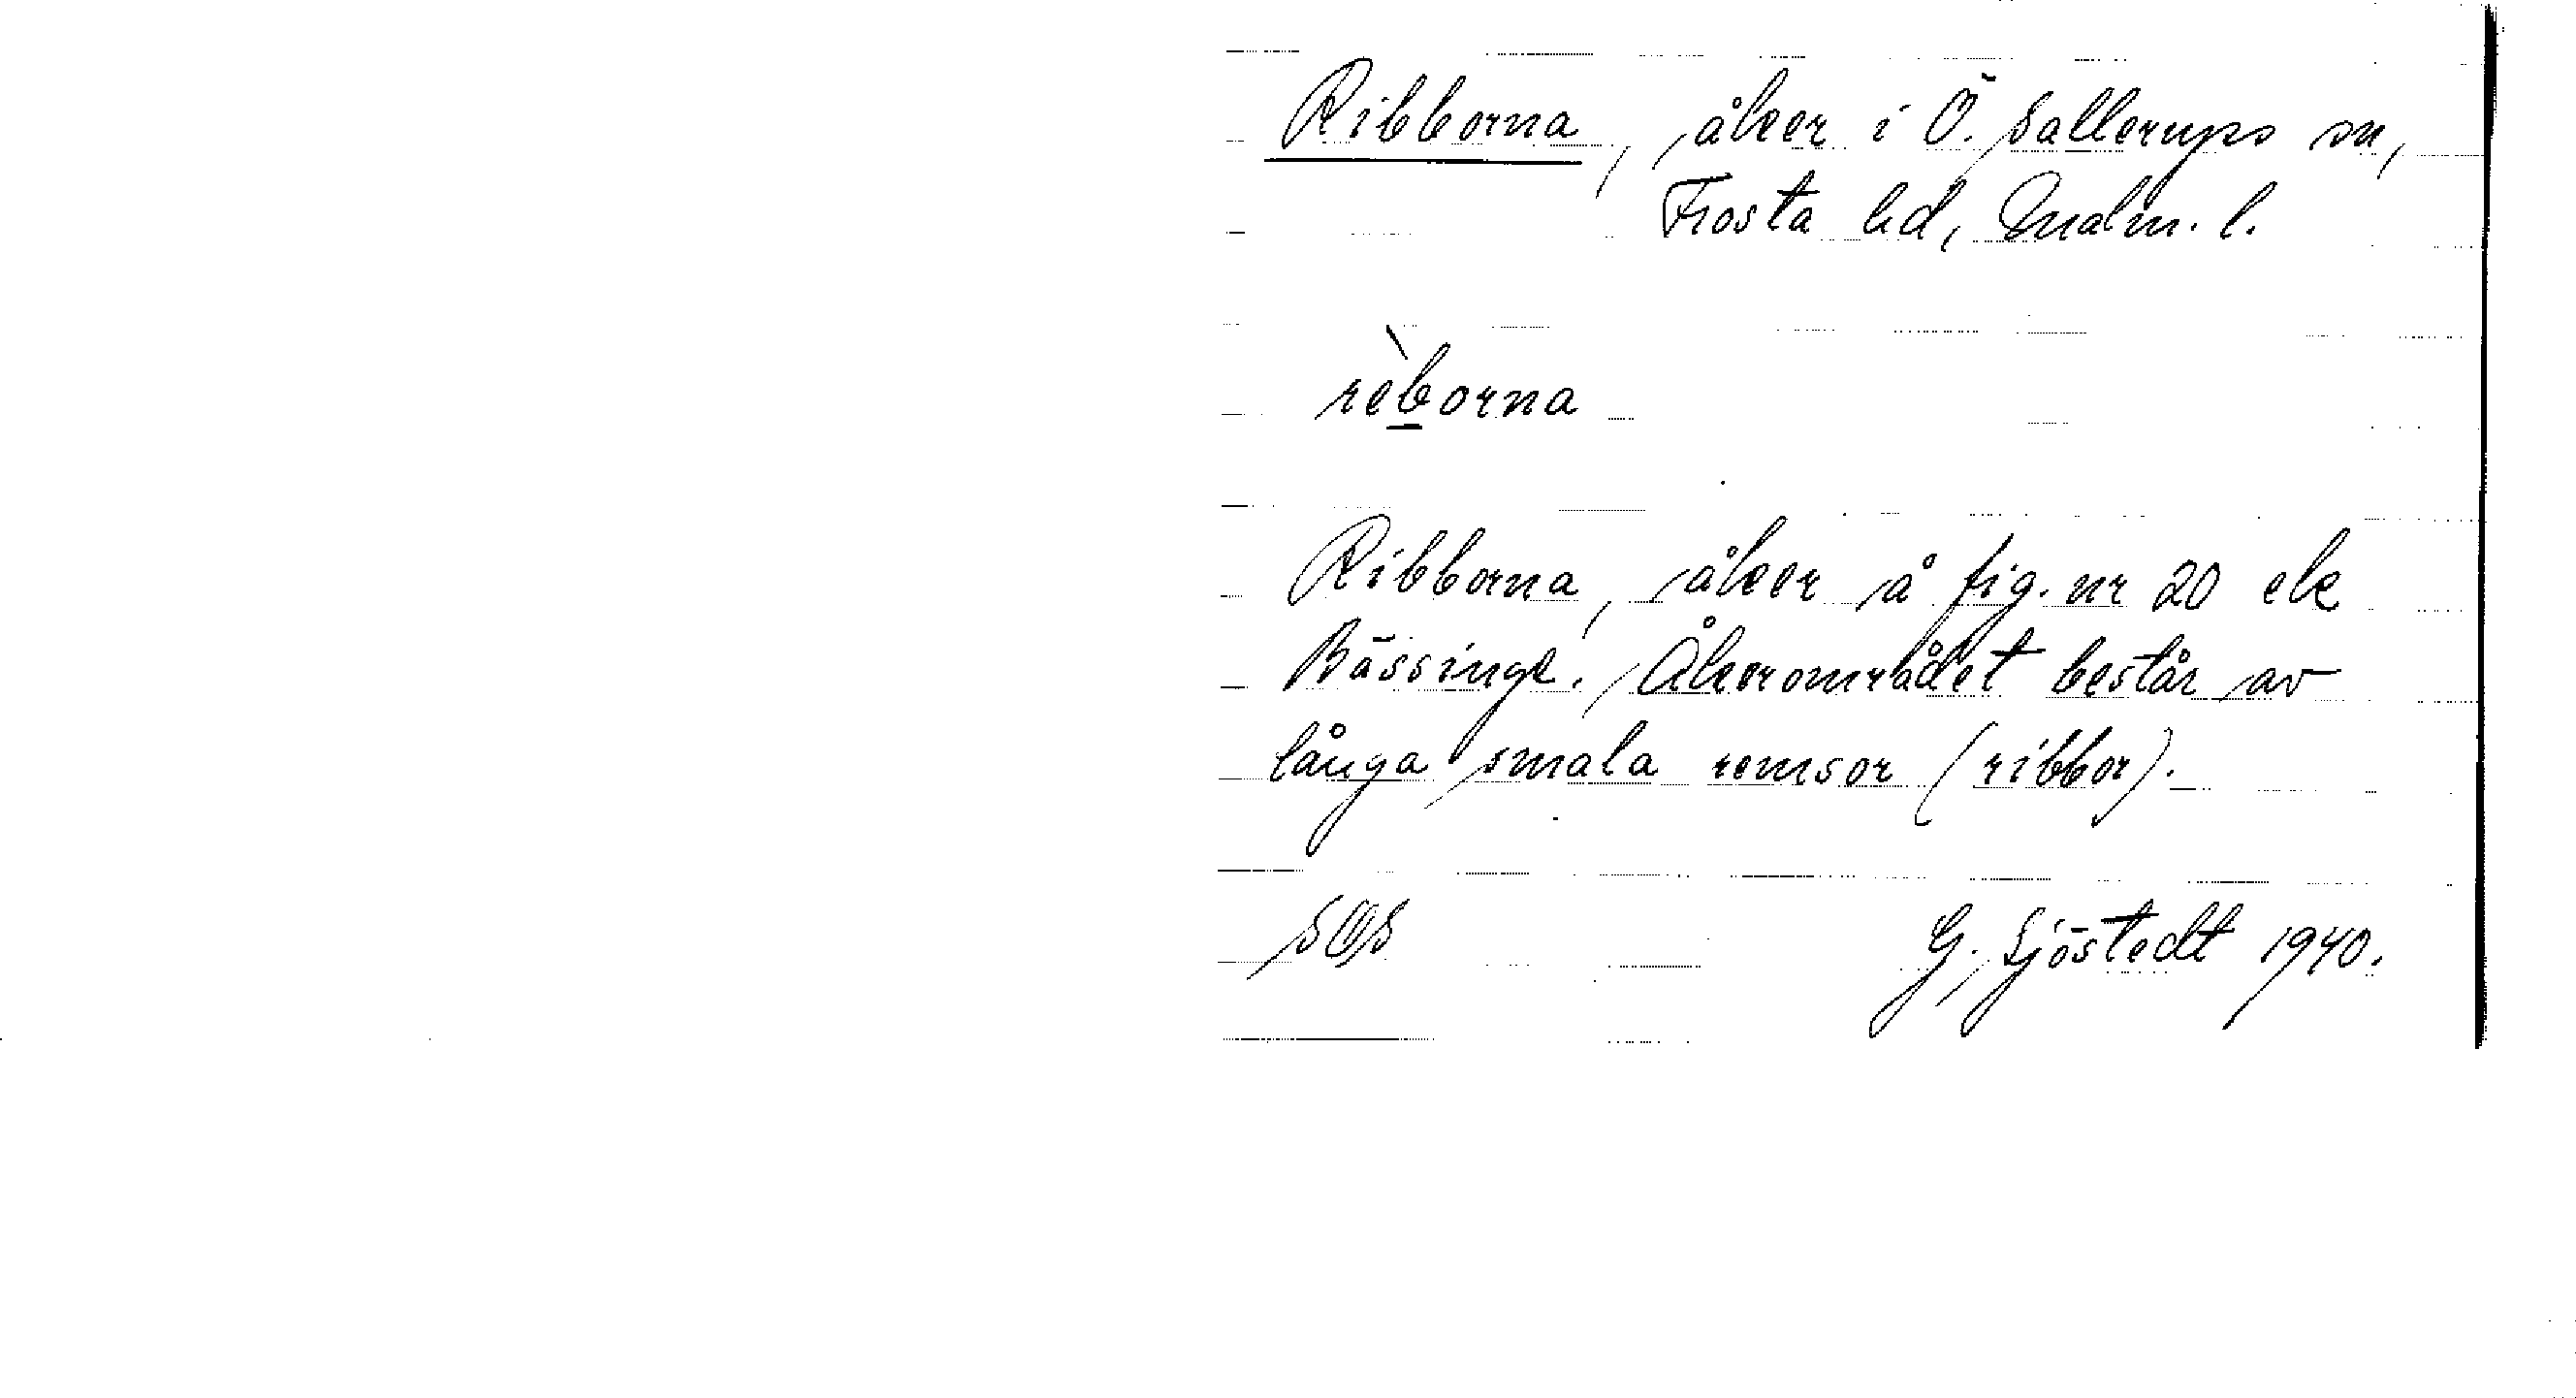 Ribborna, åker i Ö. Sallerups sn,
Frosta hd, Malm. l.
rèb̲orna
Ribborna, åker å fig. nr 20 ek
Bässinge. Åkerområdet består av
långa smala remsor (ribbor).
SOS G. Sjöstedt 1940.